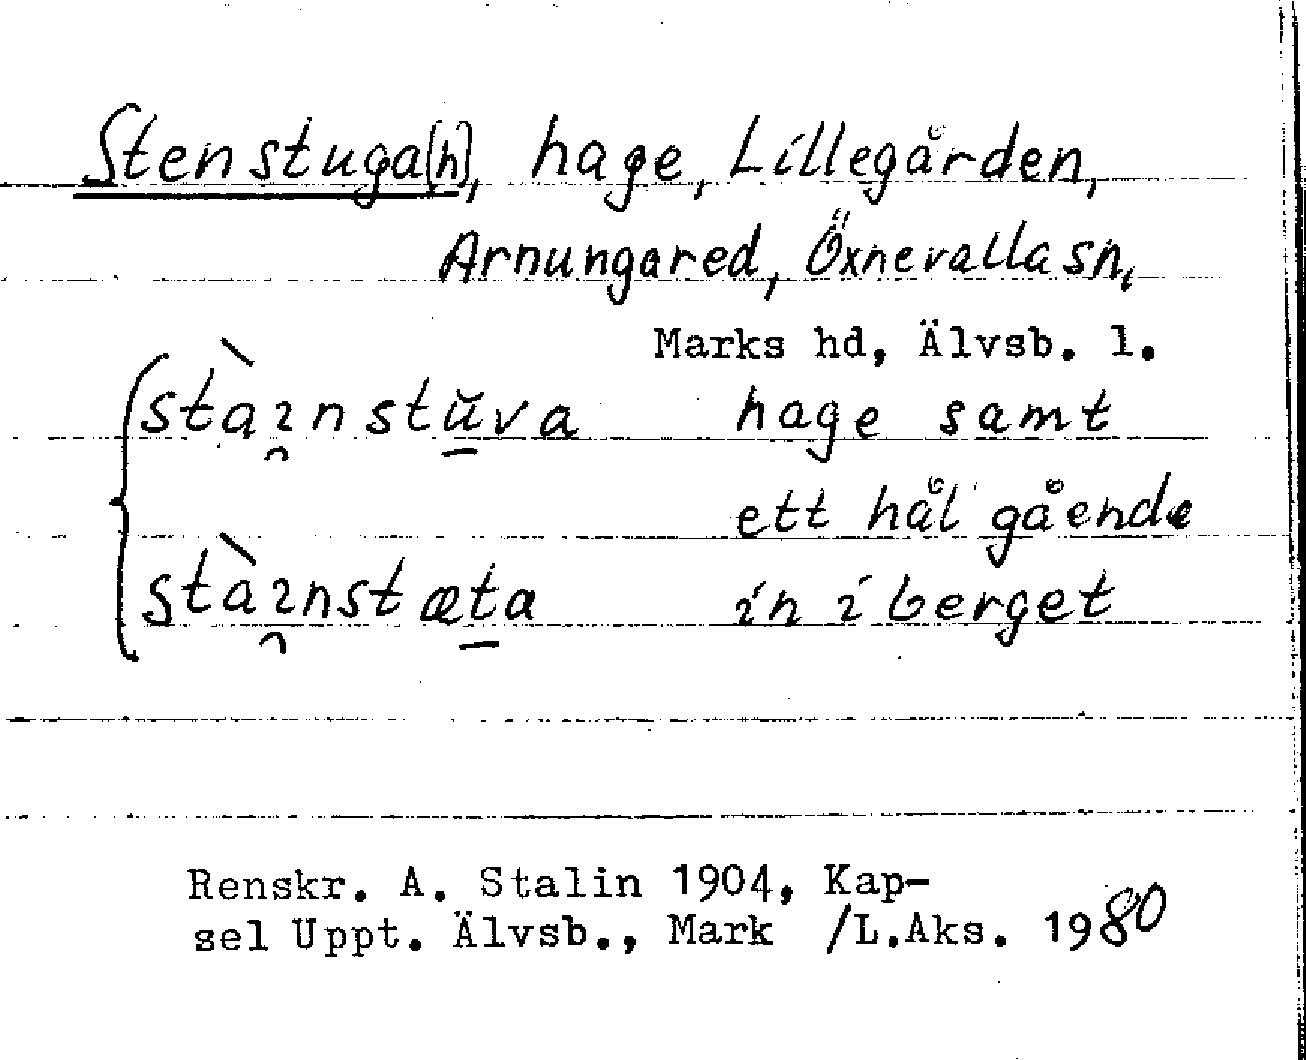 Stenstuga[n], hage, Lillegården,
Arnungared, Öxnevalla sn,
Marks hd, Älvsb. l.
stàı̯nstŭva hage samt
ett hål gående
stàı̯nstæta in i berget
Renskr. A. Stalin 1904, Kap-
sel Uppt. Älvsb., Mark /L.Aks. 1980